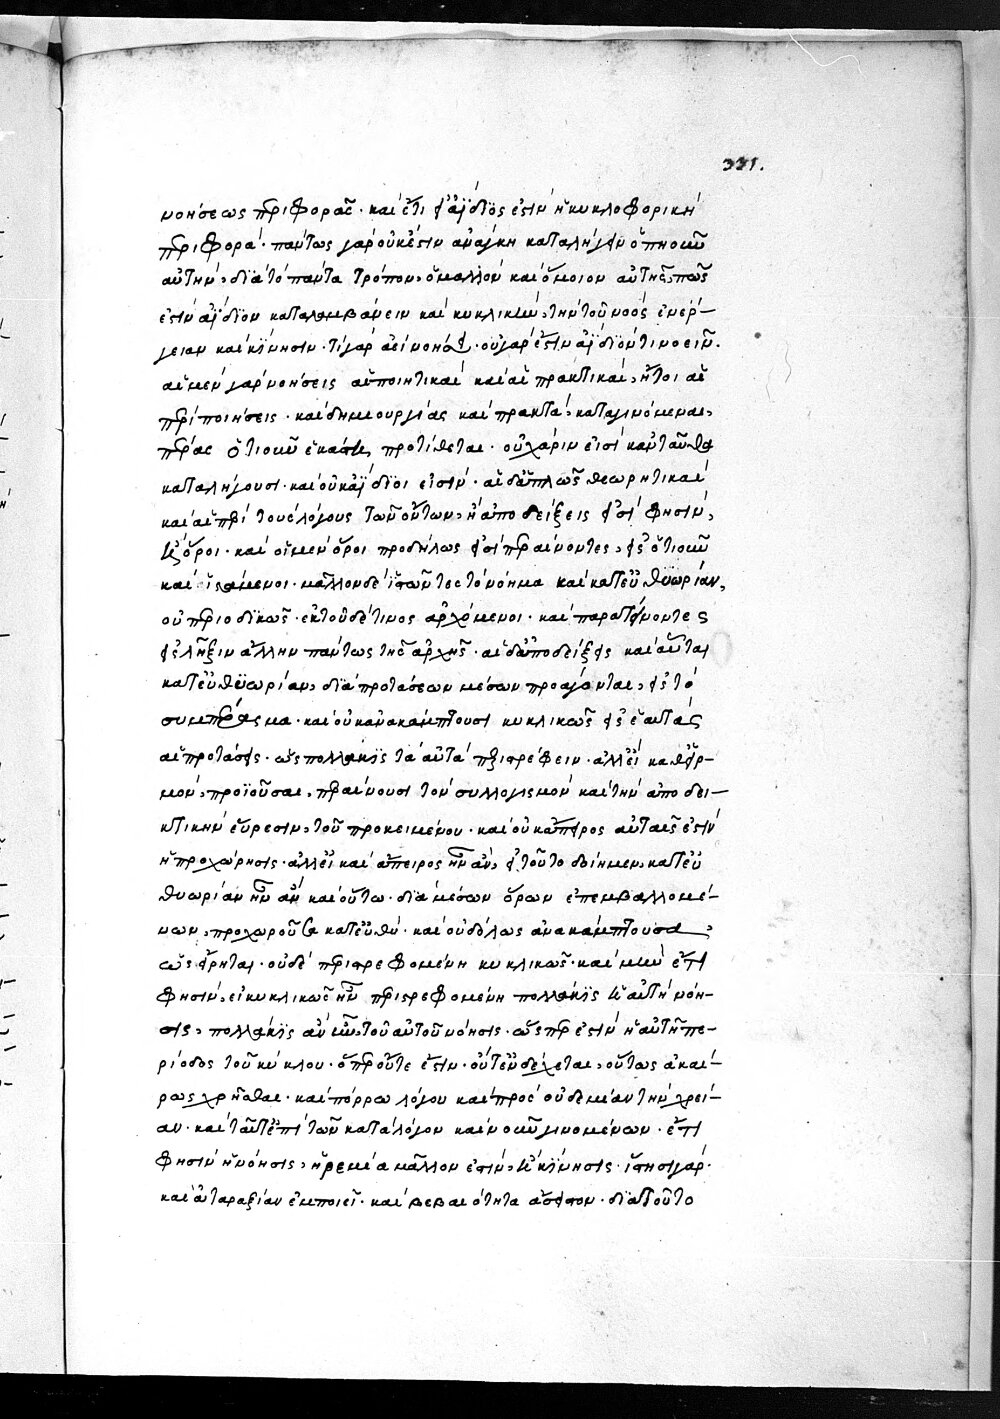 331.
νοήσεως περιφορᾶς· καὶ ἔτι εἰ ἀΐδιός ἐστιν ἡ κυκλοφορικὴ
περιφορά· πάντως γὰρ οὐκ ἔστιν ἀνάγκη καταλήγειν ὅπῃ οὖν
αὐτήν, διὰ τὸ πάντα τρόπον, ὁμαλὸν καὶ ὅμοιον αὐτῆς, πῶς
ἐστὶν ἀΐδιον καταλαμβάνειν καὶ κυκλικὴν, τὴν τοῦ νοὸς ἐνέρ-
γειαν καὶ κίνησιν· τί γὰρ ἀεὶ νοήσει· οὐ γὰρ ἔστιν ἀΐδιόν τι νοεῖν.
αἱ μὲν γὰρ νοήσεις αἱ ποιητικαὶ καὶ αἱ πρακτικαὶ, ἤτοι αἱ
περὶ ποιήσεις· καὶ δημιουργίας καὶ πρακτὰ, καταγινόμεναι,
πέρας ὅτι οὖν ἑκάστῃ προτίθεται· οὗ χάριν εἰσὶ κἀνταῦθα
καταλήγουσι· καὶ οὐκ ἀΐδιοι εἰσίν· αἱ δ' ἁπλῶς θεωρητικαὶ
καὶ αἱ περὶ τοὺς λόγους τῶν ὄντων, ἢ ἀποδείξεις εἰσί φησιν,
ἢ ὅροι· καὶ οἱ μὲν ὅροι προδήλως εἰσὶ περαίνοντες, εἰς ὅτι οὖν
καὶ ἱστάμενοι· μᾶλλον δὲ ἱστῶντες τὸ νόημα καὶ κατ' εὐθυωρίαν,
οὐ περιοδικῶς· ἐκ τοῦ δέ τινος ἀρχόμενοι· καὶ παρατείνοντες
εἰς λῆξιν ἄλλην πάντως τῆς ἀρχῆς· αἱ δ' ἀποδείξεις καὶ αὗται
κατ' εὐθυωρίαν, διὰ προτάσεων μέσων προαγόνται, εἰς τὸ
συμπέρασμα· καὶ οὐκ ἀνακάμπτουσι κυκλικῶς εἰς ἑαυτάς
αἱ προτάσεις· ὡς πολλάκις τὰ αὐτὰ περιστρέφειν· ἀλλ' εἰ καθ' εἱρ-
μὸν, προϊοῦσαι, περαίνουσι τὸν συλλογισμὸν καὶ τὴν ἀποδει-
κτικὴν εὕρεσιν, τοῦ προκειμένου· καὶ οὐκ ἄπειρος αὐταῖς ἐστὶν
ἡ προχώρησις· ἀλλ' εἰ καὶ ἄπειρος ἦν ἂν, εἰ τοῦτο δοίημεν, κατ' εὐ-
θυωρίαν ἦν ἂν καὶ οὕτω· διὰ μέσων ὅρων ἐπεμβαλλομέ-
νων, προχωροῦσα κατ' εὐθὺ· καὶ οὐδόλως ἀνακάμπτουσα,
ὡς εἴρηται· οὐδὲ περιστρεφομένη κυκλικῶς· καὶ μὴν ἔτι
φησὶν, εἰ κυκλικῶς ἦν περιστρεφομένη πολλάκις ἡ αὐτὴ νόη-
σις, πολλάκις ἂν ἦν, τοῦ αὐτοῦ νόησις· ὥσπερ ἐστὶν ἡ αὐτὴ πε-
ρίοδος τοῦ κύκλου· ὅπερ οὔτε ἐστὶν· οὔτ' ἐνδέχεται, οὕτως ἀκαί-
ρως χρῆσθαι· καὶ πόρρω λόγου καὶ πρὸς οὐδεμίαν τὴν χρεί-
αν· καὶ ταῦτ' ἐπὶ τῶν κατὰ λόγον καὶ νοῦν γινομένων· ἔτι
φησὶν ἡ νόησις, ἠρεμία μᾶλλον ἐστὶν, ἢ κίνησις· ἵστησι γάρ·
καὶ ἀταραξίαν ἐμποιεῖ· καὶ βεβαιότητα ἄσειστον· διὰ τοῦτο